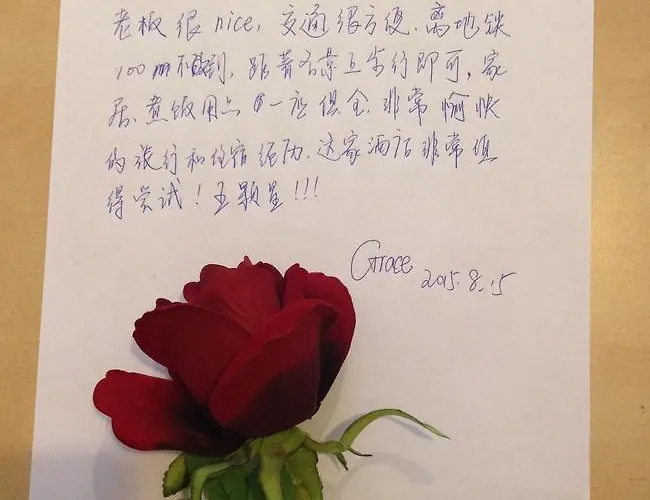 老板很nice,交通很方便.离地铁
100m不到,跟着名景点步行即可,家
居、煮饭用品一应俱全.非常愉快
的旅行和住宿经历.这家酒店非常值
得尝试!五颗星!!!
Grace 2015.8.15